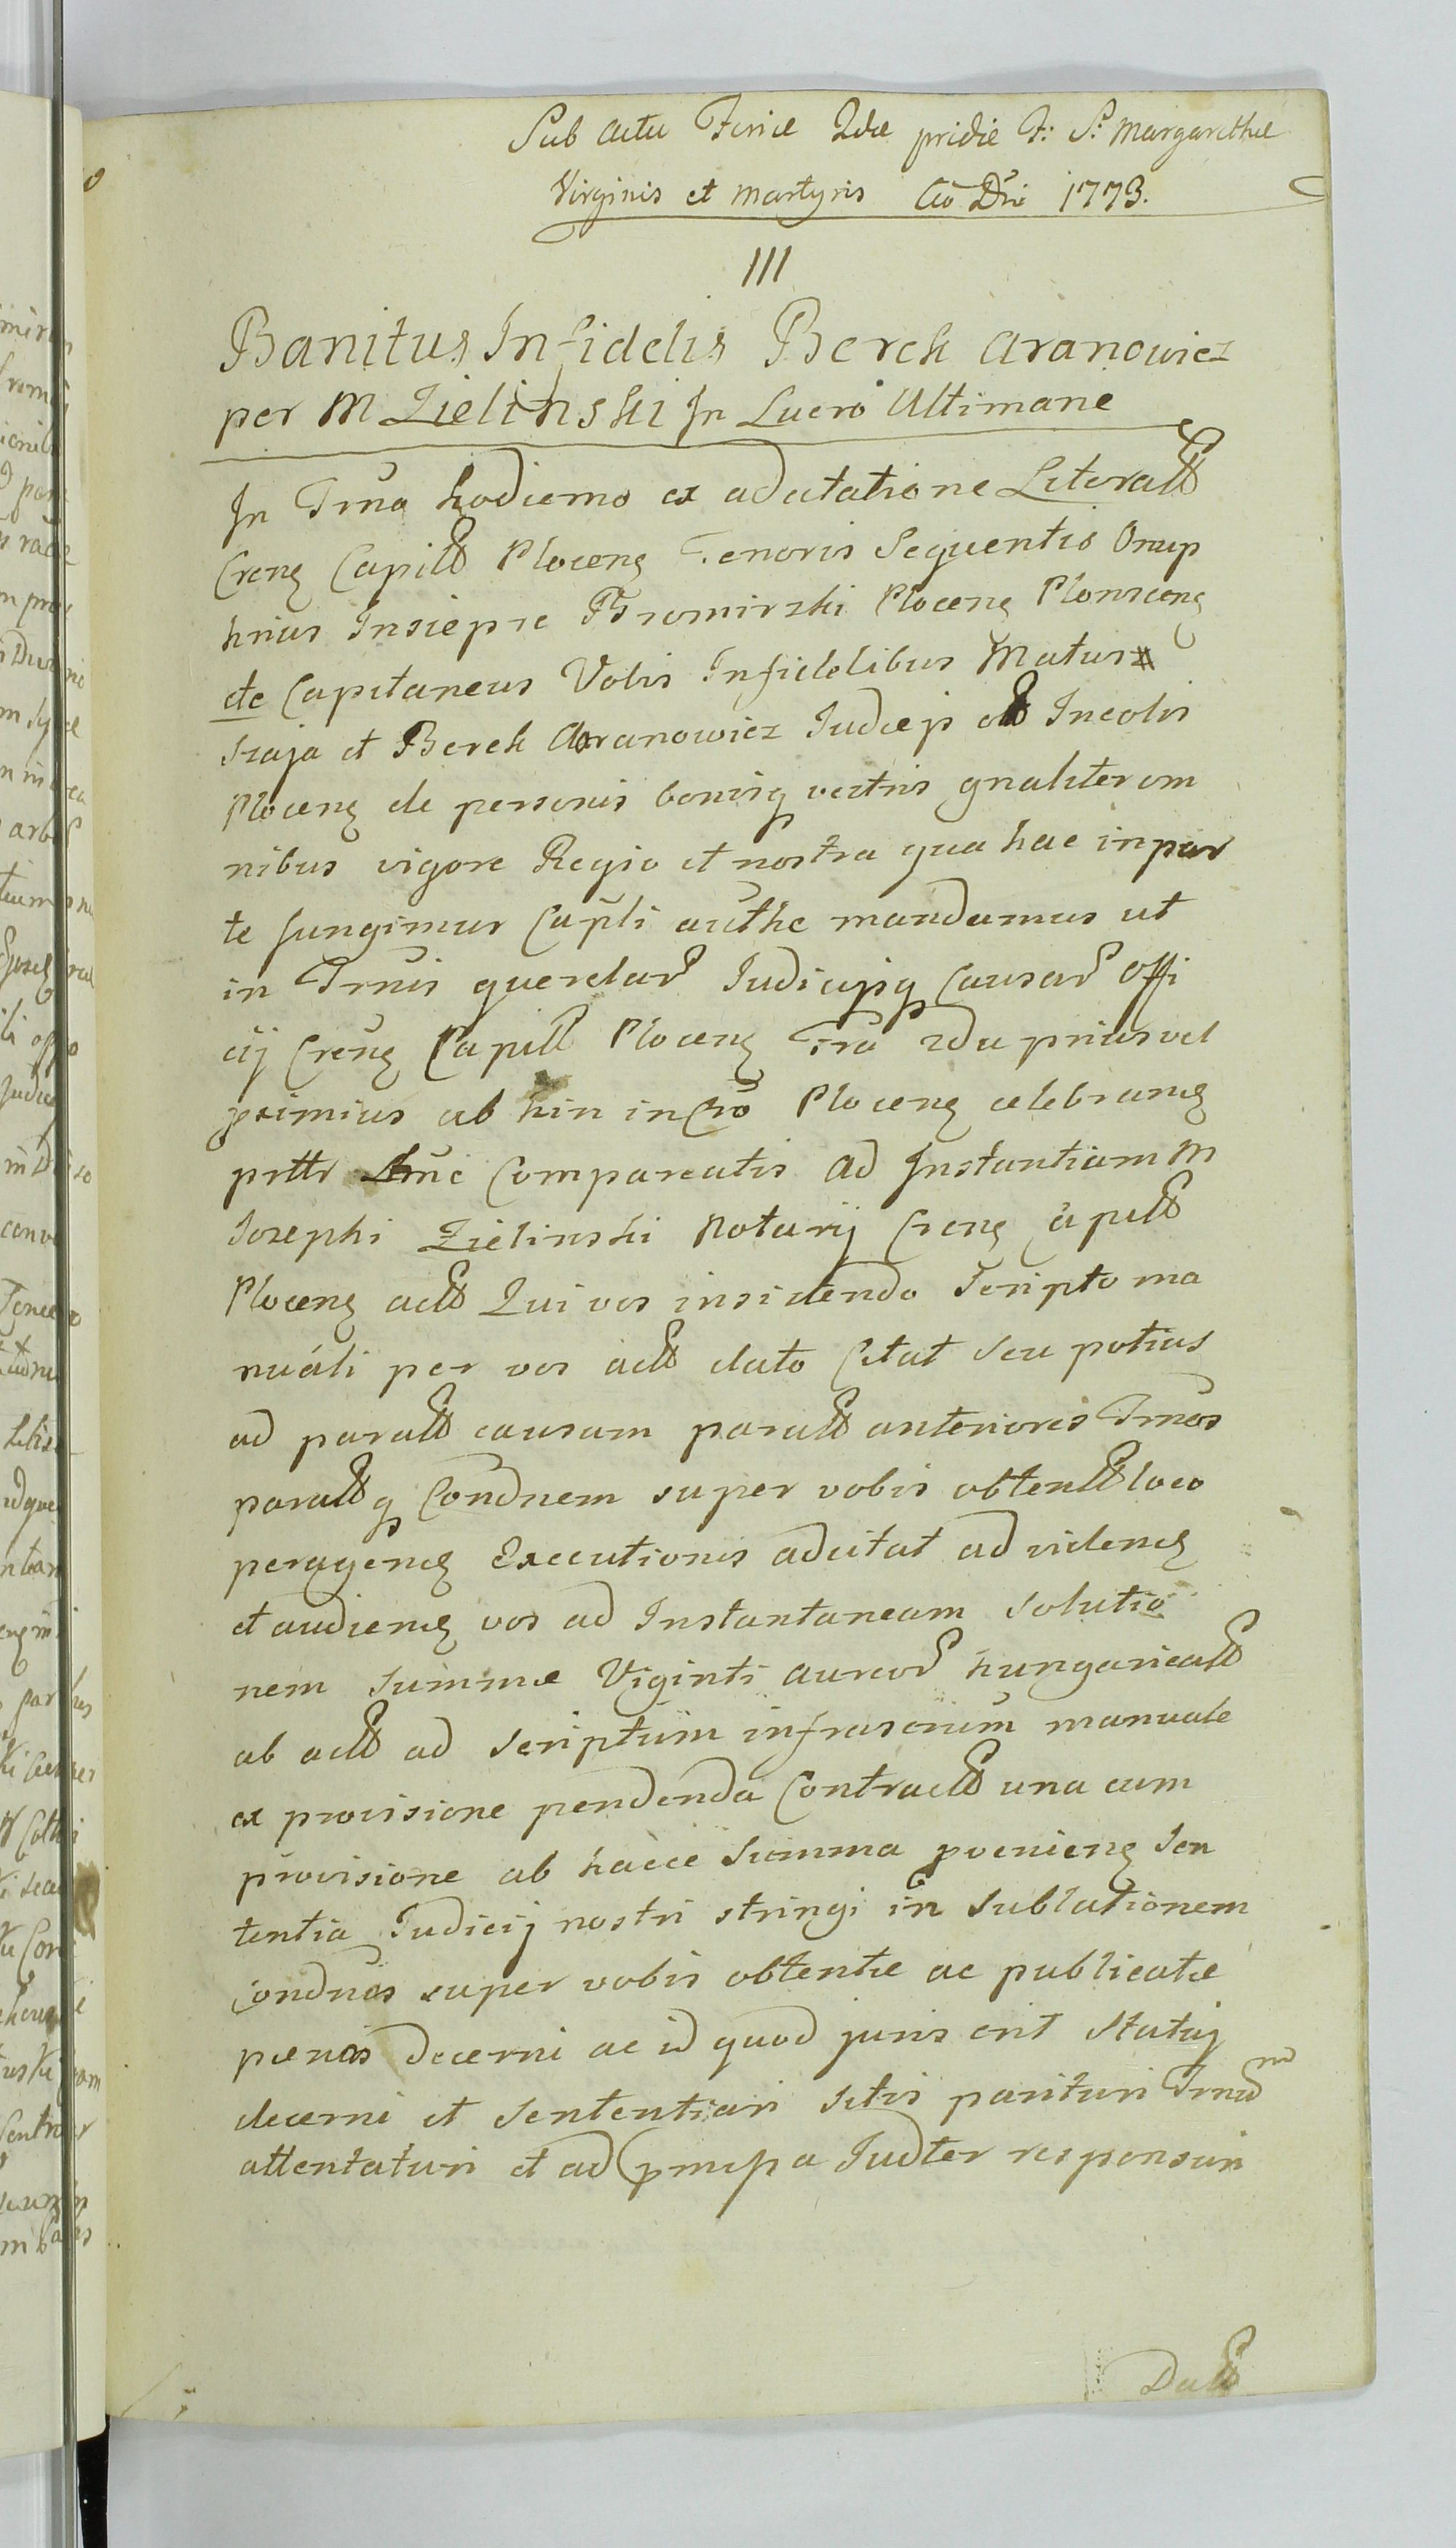 Sub actu Feriæ 2dæ pridie F: S: Margarethæ
Virginis et Martyris Ao Dni 1773.
III
Banitus Infidelis Berek Aranowicz
per M Zielinski In Lucro Ultimane
In Trno hodierno ex adcitatione Literall
Crens Capitll Plocens Tenoris Sequentis Onup
hrius Insiepre Bromirski Plocens Plonscens
etc Capitaneus Vobis Infidelibus Matus
szaja et Berek Aranowicz Judæis Incolis
Plocens de personis bonisq vestris gnaliter om
nibus vigore Regio et nostra qua hac in par
te fungimur Capli authe mandamus ut
in Trnis querelar Judicijsq Causar offi
cij Crens Capitll Plocens Fra 2da prius vel
primius ab hin in Cro Plocens celebrand
prttr Compareatis ad Instantiam M
Josephi Zielinski Notarij Crens Capitll
Plocens actll Qui vos insistendo Scripto ma
nuali per vos actll dato Citat seu potius
ad paratll causam paratll anterioris Trnos
paratllq Condnem super vobis obtentll loco
peragend Executionis adcitat ad vidend
et audiend vos ad Instantaneam solutio
nem summæ Viginti aureor hungaricall
ab actll ad scriptum infrascrium manuale
ex provisione pendenda Contractll una cum
provisione ab hacce summa pvenieng Sen
tentia Judicij nostri stringi in sublationem
Condnis super vobis obtentæ ac publicatæ
pænas decerni ac id quod juris erit Statuj
decerni et Sententiari Sitis parituri Trnum
attentaturi et ad pmissa Judter responsuri
Datll